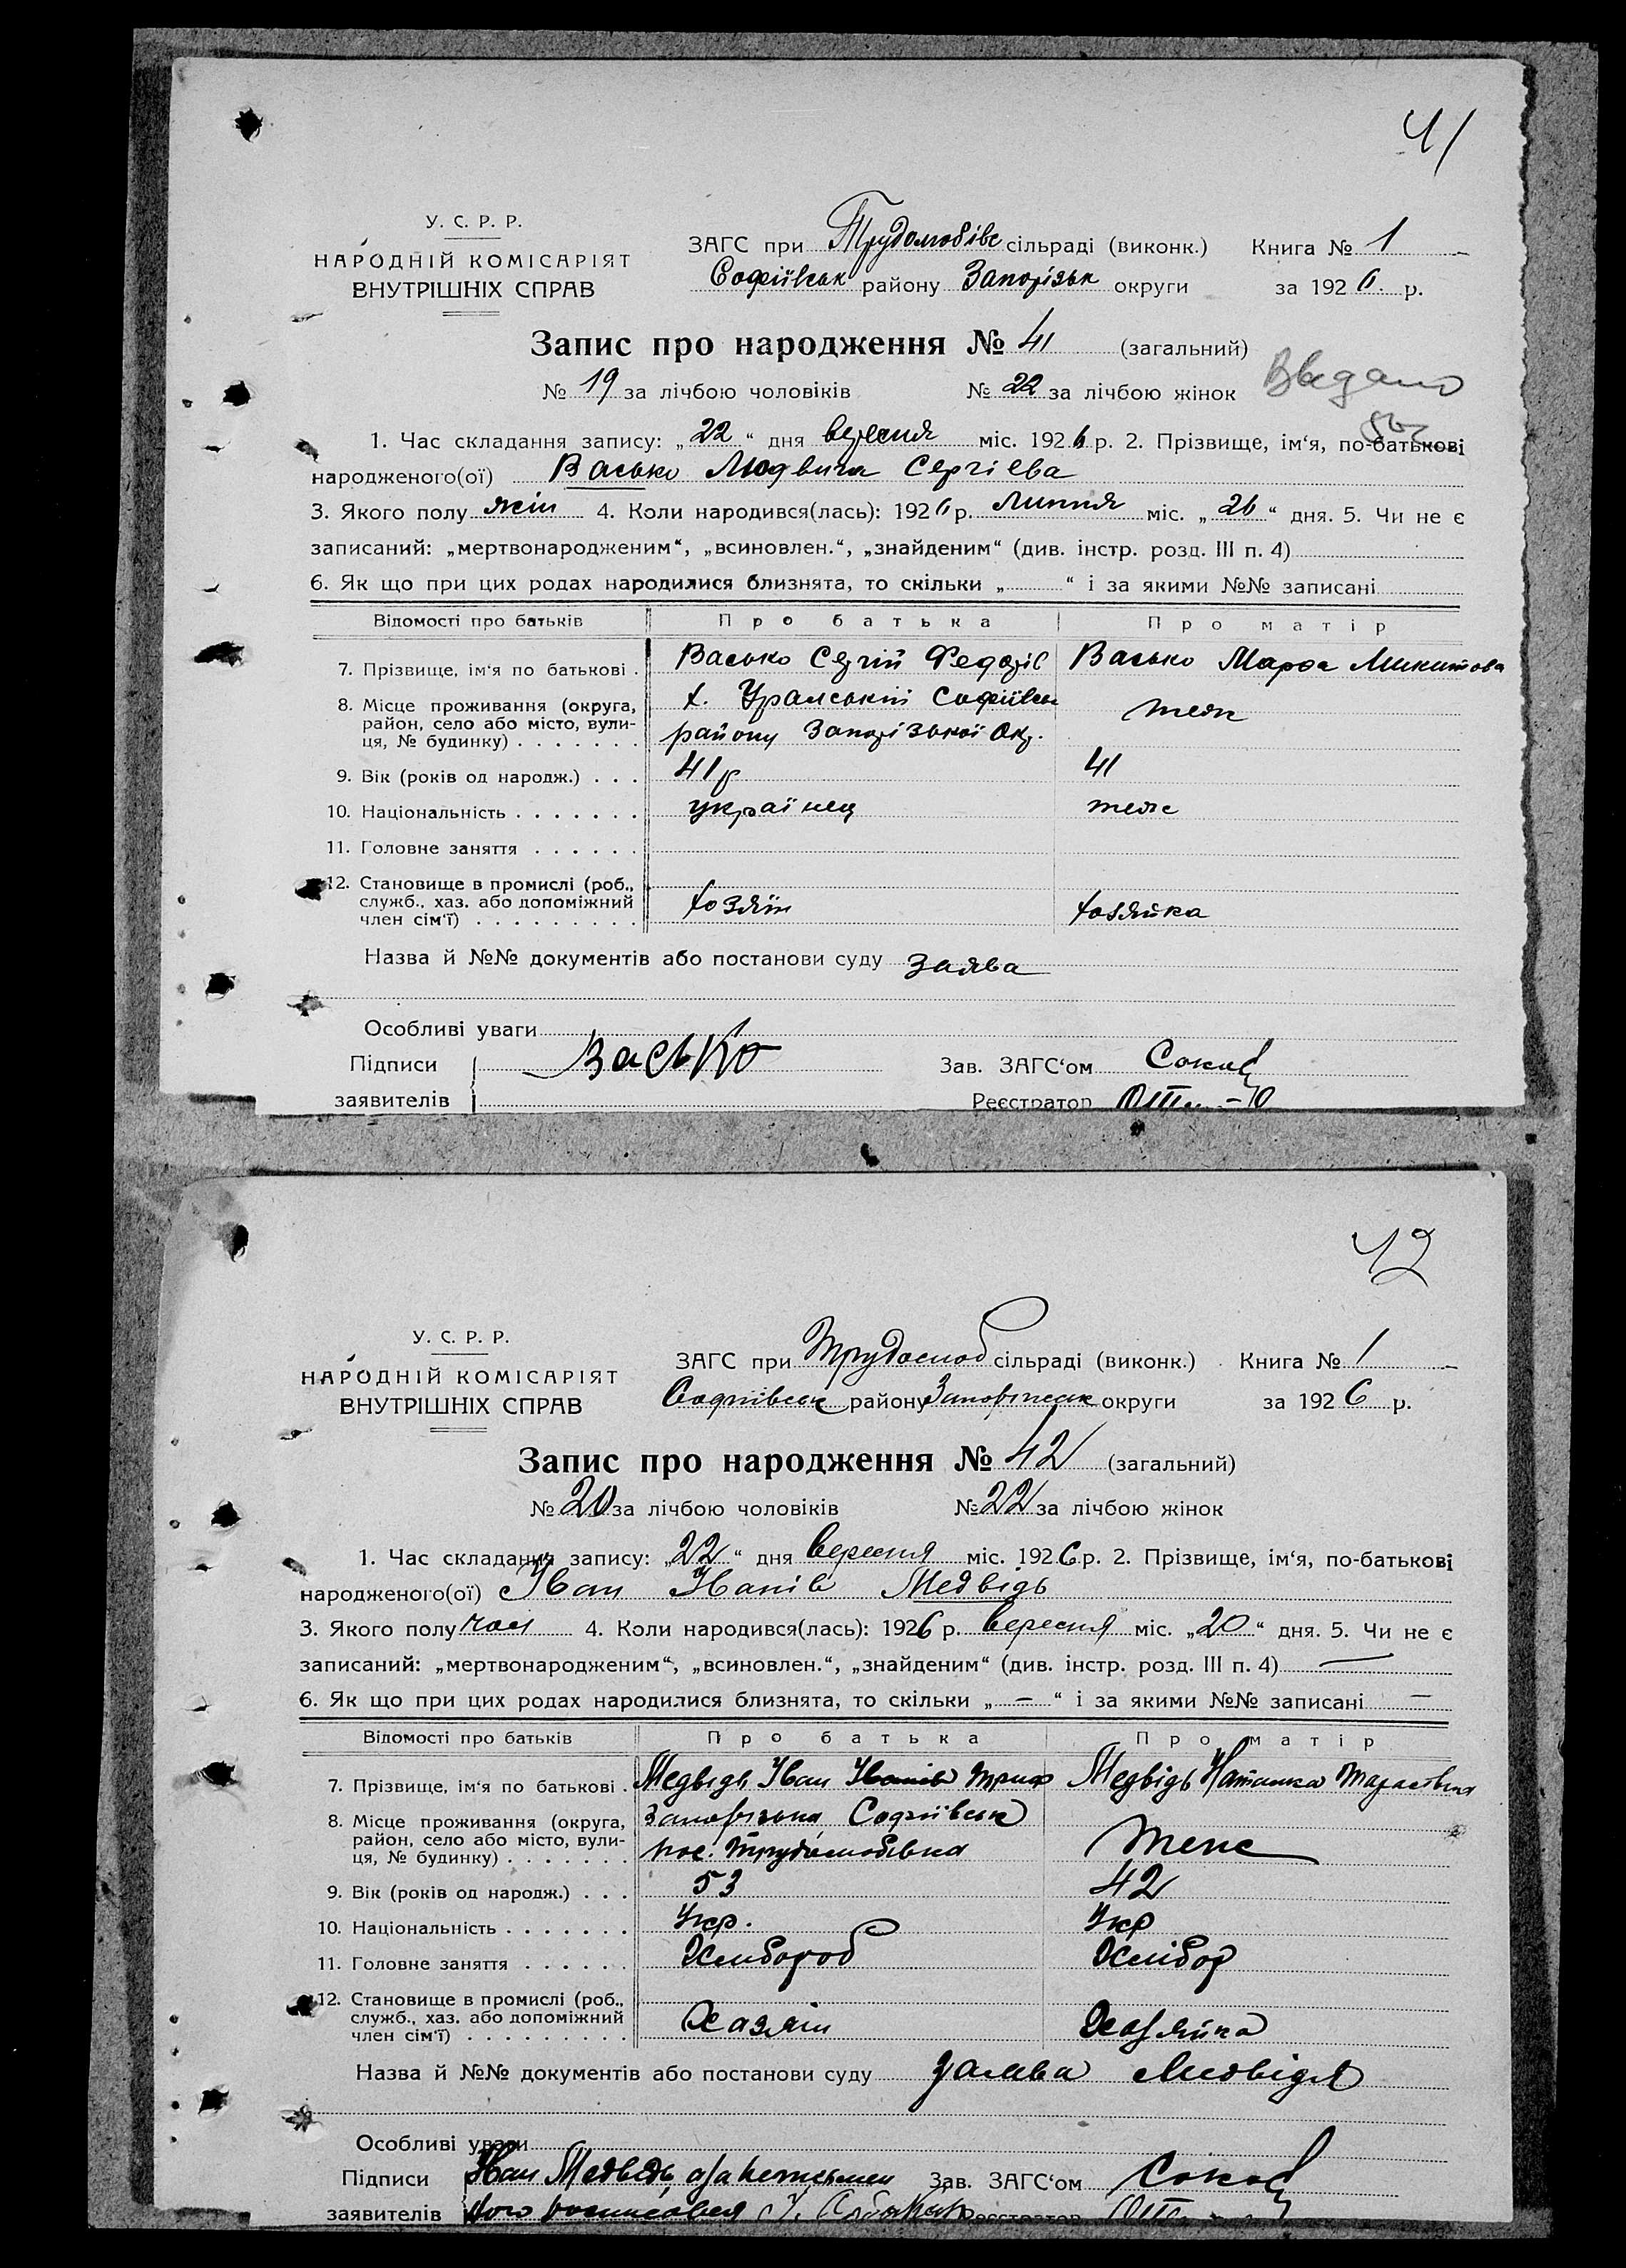 41
У. С. Р. Р.
НАРОДНІЙ КОМІСАРІЯТ
ВНУТРІШНІХ СПРАВ
ЗАГС при Трудолюбівс сільраді (виконк.) Книга № 1
Софіївськ району Запорізьк округи за 1926 р.
Запис про народження № 41 (загальний)
№ 19 за лічбою чоловіків № 22 за лічбою жінок
Введано
1. Час складання запису: „22“ дня вересня міс. 1926 р. 2. Прізвище, ім‘я, по-батькові
народженого(ої) Васько Людвига Сергієва
3. Якого полу жін 4. Коли народився(лась): 1926 р. Липня міс. „26“ дня. 5. Чи не є
записаний: „мертвонародженим“, „всиновлен.“, „знайденим“ (див. інстр. розд. III п. 4)
6. Як що при цих родах народилися близнята, то скільки „ “ і за якими №№ записані
Відомості про батьків Про батька Про матір
7. Прізвище, ім‘я по батькові . Васько Сергій Федорів Васько Марфа Микитова
8. Місце проживання (округа, район, село або місто, вули-ця, № будинку) . . . . . . . х. Уральський Софіївськ теж
району Запорізької Окр.
9. Вік (років од народж.) . . . 41р 41
10. Національність . . . . . . . українец теж
11. Головне заняття . . . . . .
12. Становище в промислі (роб., служб., хаз. або допоміжний член сім‘ї) . . . . . . . . . хозяїн хозяйка
Назва й №№ документів або постанови суду заява
Особливі уваги
Підписи Васько Зав. ЗАГС‘ом
заявителів Реєстратор
42
У. С. Р. Р.
НАРОДНІЙ КОМІСАРІЯТ
ВНУТРІШНІХ СПРАВ
ЗАГС при Трудолюб сільраді (виконк.) Книга № 1
Софіївськ району Запоріжськ округи за 1926 р.
Запис про народження № 42 (загальний)
№ 20 за лічбою чоловіків № 22 за лічбою жінок
1. Час складання запису: „22“ дня вересня міс. 1926 р. 2. Прізвище, ім‘я, по-батькові
народженого(ої) Іван Іванів Медвідь
3. Якого полу чол 4. Коли народився(лась): 1926 р. вересня міс. „20“ дня. 5. Чи не є
записаний: „мертвонародженим“, „всиновлен.“, „знайденим“ (див. інстр. розд. III п. 4) —
6. Як що при цих родах народилися близнята, то скільки „ — “ і за якими №№ записані —
Відомості про батьків Про батька Про матір
7. Прізвище, ім‘я по батькові . Медвідь Іван Триф Медвідь Наталка Тарасівна
8. Місце проживання (округа, район, село або місто, вули-ця, № будинку) . . . . . . . Запорізька Софіївськ теж
пос. Трудолюбівка
9. Вік (років од народж.) . . . 53 42
10. Національність . . . . . . . Укр. Укр
11. Головне заняття . . . . . . Хлибороб Хлібор
12. Становище в промислі (роб., служб., хаз. або допоміжний член сім‘ї) . . . . . . . . . Хазяїн Хазяйка
Назва й №№ документів або постанови суду заява Медвідя
Особливі уваги
Підписи Іван Медвідь а за неписьмен Зав. ЗАГС‘ом
заявителів його росписався Реєстратор